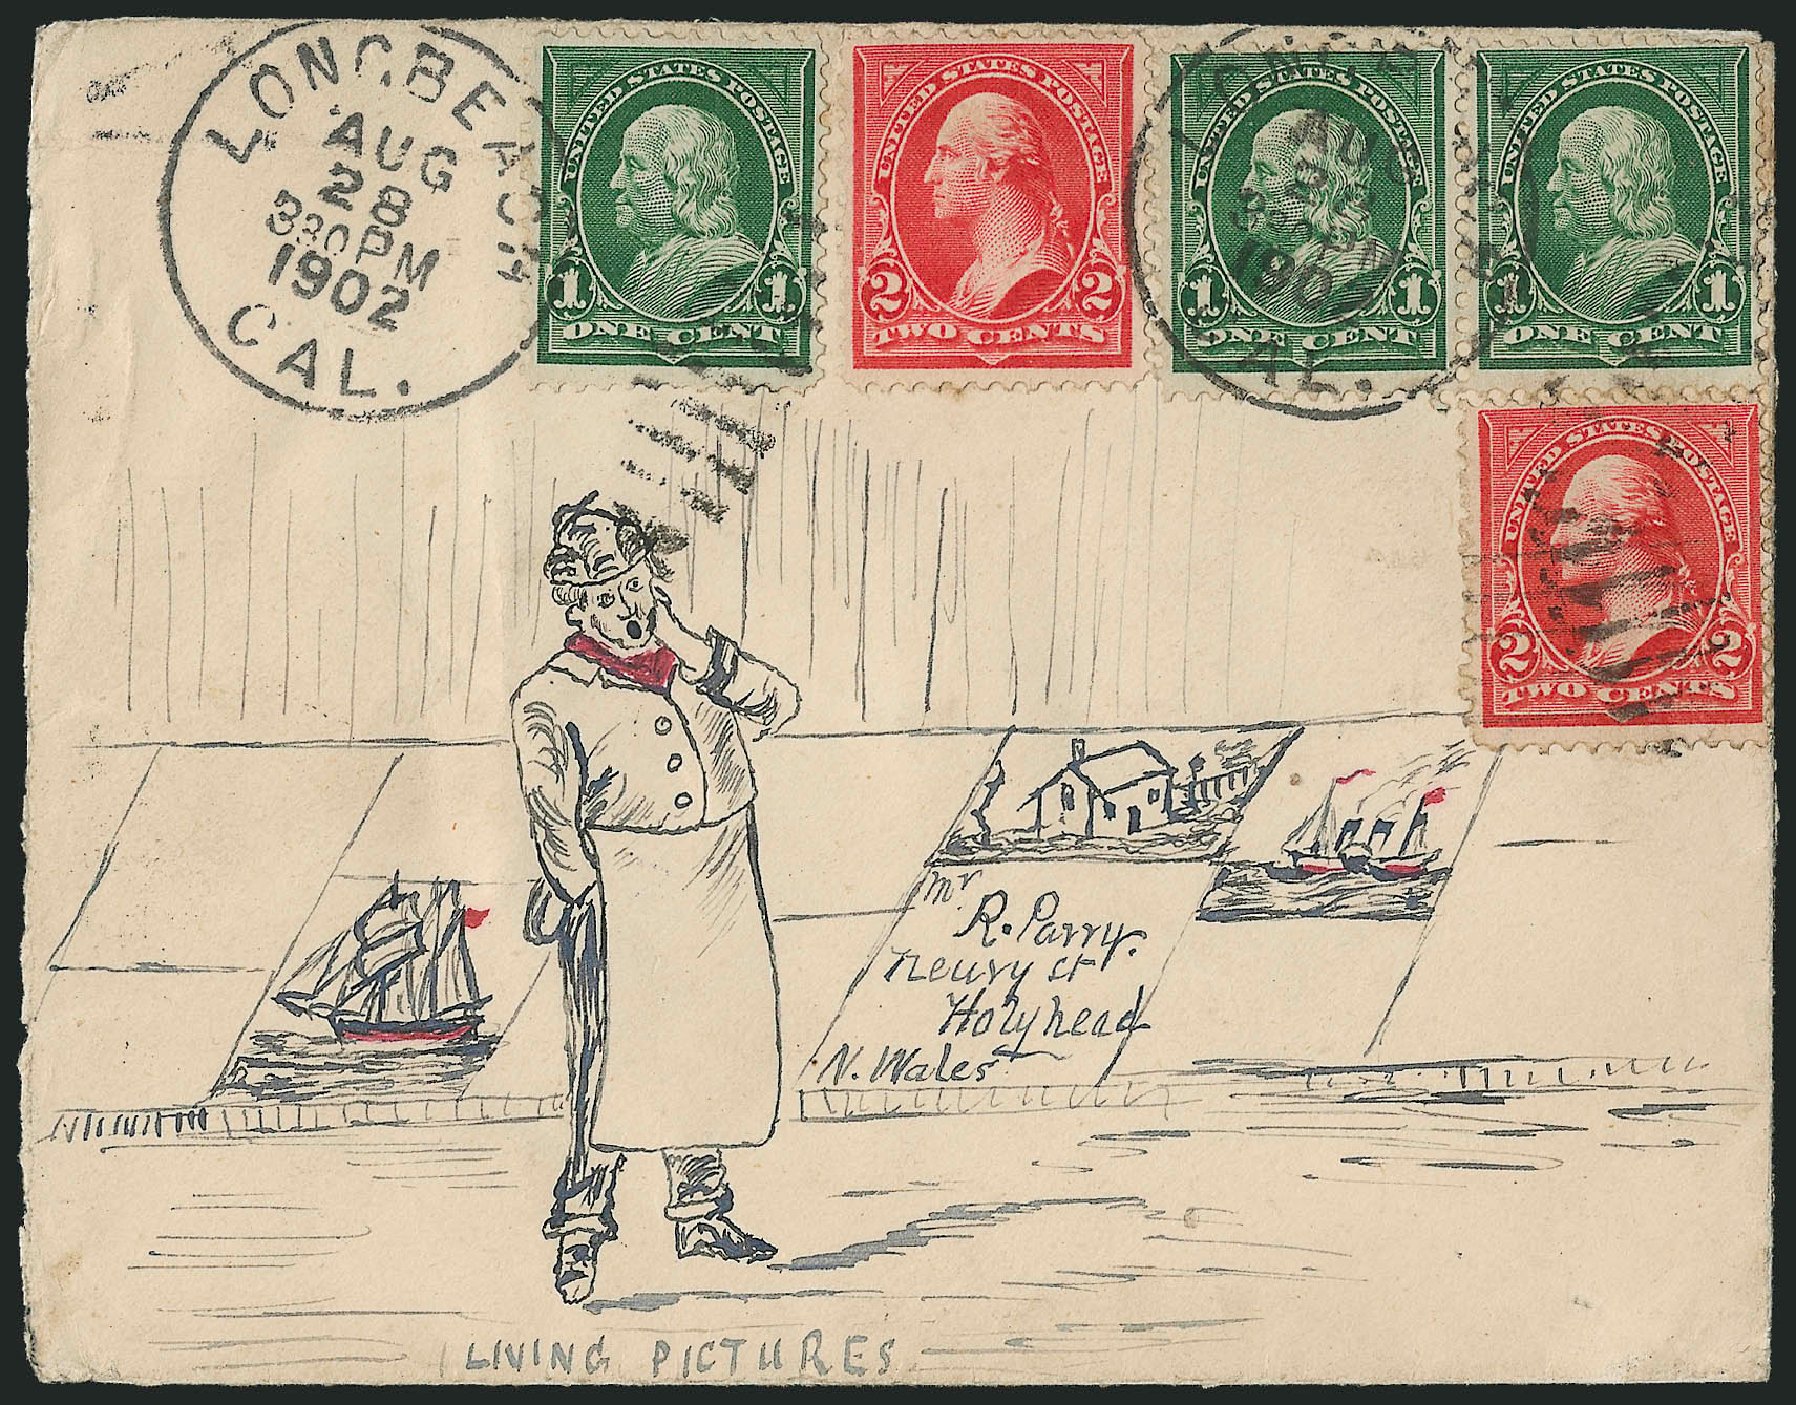 LONG BEACH
AUG
28
330PM
1902
CAL.
UNITED STATES POSTAGE
1 1
ONE CENT
UNITED STATES POSTAGE
2 2
TWO CENTS
UNITED STATES POSTAGE
1 1
ONE CENT
UNITED STATES POSTAGE
1 1
ONE CENT
AUG
CAL.
UNITED STATES POSTAGE
2 2
TWO CENTS
Mr
R. Parry.
Newry st
Holyhead
N. Wales
LIVING PICTURES